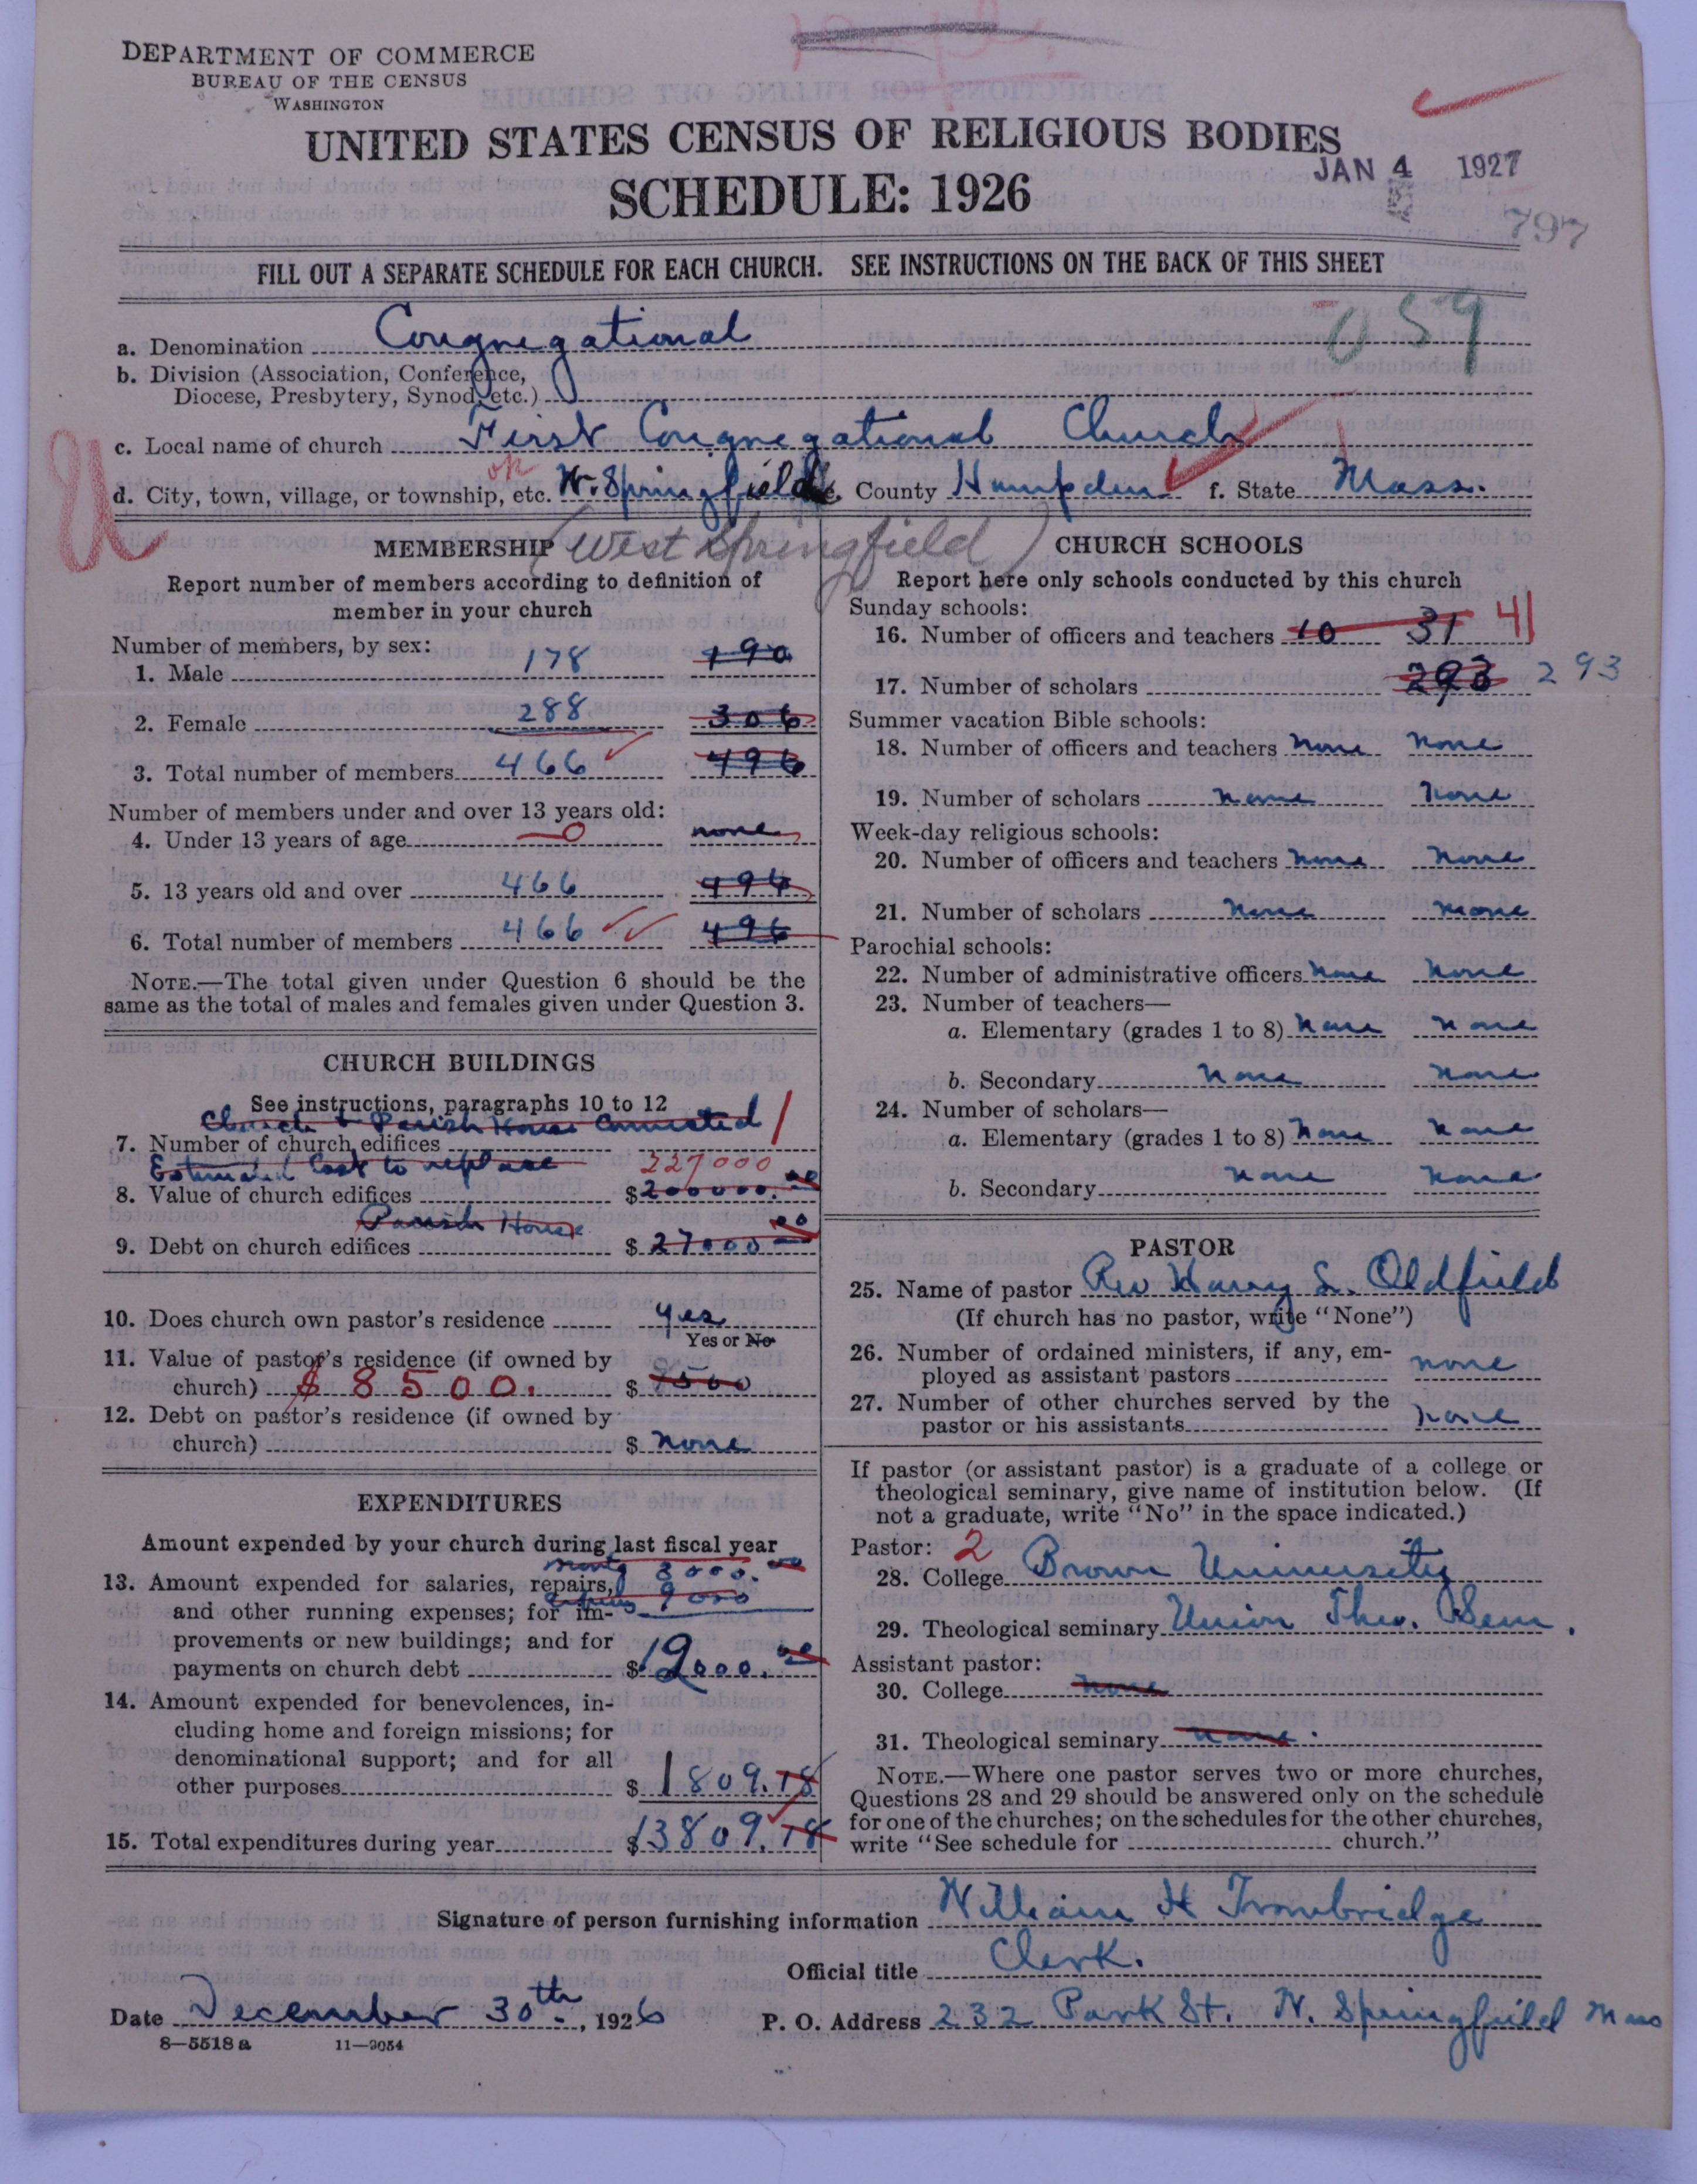 DEPARTMENT OF COMMERCE
BUREAU OF THE CENSUS
WASHINGTON
UNITED STATES CENSUS OF RELIGIOUS BODIES
SCHEDULE: 1926
JAN 4 1927
797
FILL OUT A SEPARATE SCHEDULE FOR EACH CHURCH. SEE INSTRUCTIONS ON THE BACK OF THIS SHEET
059
a. Denomination Congregational
b. Division (Association, Conference,
Diocese, Presbytery, Synod, etc.)
c. Local name of church First Congregational Church
d. City, town, village, or township, etc. W. Springfield e. County Hampden f. State Mass.
(West Springfield)
MEMBERSHIP
Report number of members according to definition of
member in your church
Number of members, by sex:
1. Male 178 190
2. Female 288 306
3. Total number of members 466 496
Number of members under and over 13 years old:
4. Under 13 years of age 0 none
5. 13 years old and over 466 496
6. Total number of members 466 496
NOTE.—The total given under Question 6 should be the
same as the total of males and females given under Question 3.
CHURCH BUILDINGS
See instructions, paragraphs 10 to 12
Church & Parish House Connected
7. Number of church edifices 1
Estimated Cost to replace 227000
8. Value of church edifices $200000.00
Parish House
9. Debt on church edifices $27000.00
10. Does church own pastor's residence yes
Yes or No
11. Value of pastor's residence (if owned by
church) $8500. $8500
12. Debt on pastor's residence (if owned by
church) $ none
EXPENDITURES
Amount expended by your church during last fiscal year
3000.00
13. Amount expended for salaries, repairs,
9000
and other running expenses; for im-
provements or new buildings; and for
payments on church debt $12000.00
14. Amount expended for benevolences, in-
cluding home and foreign missions; for
denominational support; and for all
other purposes $1809.18
15. Total expenditures during year $13809.18
CHURCH SCHOOLS
Report here only schools conducted by this church
Sunday schools:
16. Number of officers and teachers 10 31 41
17. Number of scholars 293 293
Summer vacation Bible schools:
18. Number of officers and teachers None None
19. Number of scholars None None
Week-day religious schools:
20. Number of officers and teachers None None
21. Number of scholars None None
Parochial schools:
22. Number of administrative officers None None
23. Number of teachers—
a. Elementary (grades 1 to 8) None None
b. Secondary None None
24. Number of scholars—
a. Elementary (grades 1 to 8) None None
b. Secondary None None
PASTOR
25. Name of pastor Rev Harry S. Oldfield
(If church has no pastor, write "None")
26. Number of ordained ministers, if any, em-
ployed as assistant pastors none
27. Number of other churches served by the
pastor or his assistants none
If pastor (or assistant pastor) is a graduate of a college or
theological seminary, give name of institution below. (If
not a graduate, write "No" in the space indicated.)
Pastor: 2
28. College Brown University
29. Theological seminary Union Theo. Sem.
Assistant pastor:
30. College None
31. Theological seminary None
NOTE.—Where one pastor serves two or more churches,
Questions 28 and 29 should be answered only on the schedule
for one of the churches; on the schedules for the other churches,
write "See schedule for church."
Signature of person furnishing information William H Trowbridge
Official title Clerk.
Date December 30th, 1926 P. O. Address 232 Park St. W. Springfield Mass
8—5518 a 11—9054